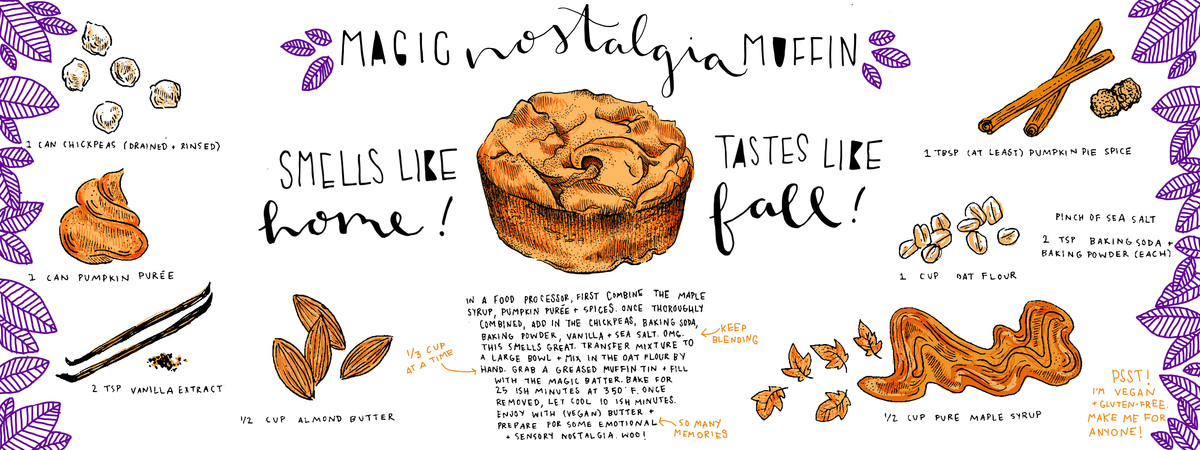 MAGIC nostalgia MUFFIN
SMELLS LIKE
home!
TASTES LIKE
fall!
1 CAN CHICKPEAS (DRAINED + RINSED)
1 CAN PUMPKIN PURÉE
2 TSP VANILLA EXTRACT
1/2 CUP ALMOND BUTTER
1/3 CUP
AT A TIME
IN A FOOD PROCESSOR, FIRST COMBINE THE MAPLE
SYRUP, PUMPKIN PURÉE + SPICES. ONCE THOROUGHLY
COMBINED, ADD IN THE CHICKPEAS, BAKING SODA,
BAKING POWDER, VANILLA + SEA SALT. OMG.
THIS SMELLS GREAT. TRANSFER MIXTURE TO
A LARGE BOWL + MIX IN THE OAT FLOUR BY
HAND. GRAB A GREASED MUFFIN TIN + FILL
WITH THE MAGIC BATTER. BAKE FOR
25 ISH MINUTES AT 350°F. ONCE
REMOVED, LET COOL 10 ISH MINUTES.
ENJOY WITH (VEGAN) BUTTER +
PREPARE FOR SOME EMOTIONAL
+ SENSORY NOSTALGIA. WOO!
KEEP
BLENDING
SO MANY
MEMORIES
1 TBSP (AT LEAST) PUMPKIN PIE SPICE
PINCH OF SEA SALT
2 TSP BAKING SODA +
BAKING POWDER (EACH)
1 CUP OAT FLOUR
1/2 CUP PURE MAPLE SYRUP
PSST!
I'M VEGAN
+ GLUTEN-FREE.
MAKE ME FOR
ANYONE!